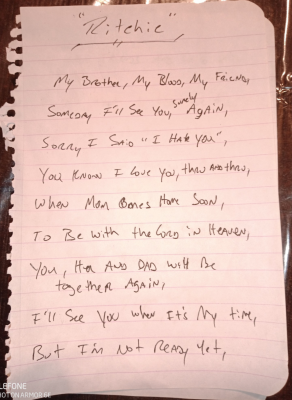 "Ritchie"
My Brother, My Blood, My Friend,
Someday I'll See You, surely Again,
Sorry I Said "I Hate You",
You Know I Love You, thru and thru,
When Mom Comes Home Soon,
To Be with the Lord in Heaven,
You, Her AND DAD will Be
together Again,
I'll See You when It's My time,
But I'm Not Ready Yet,